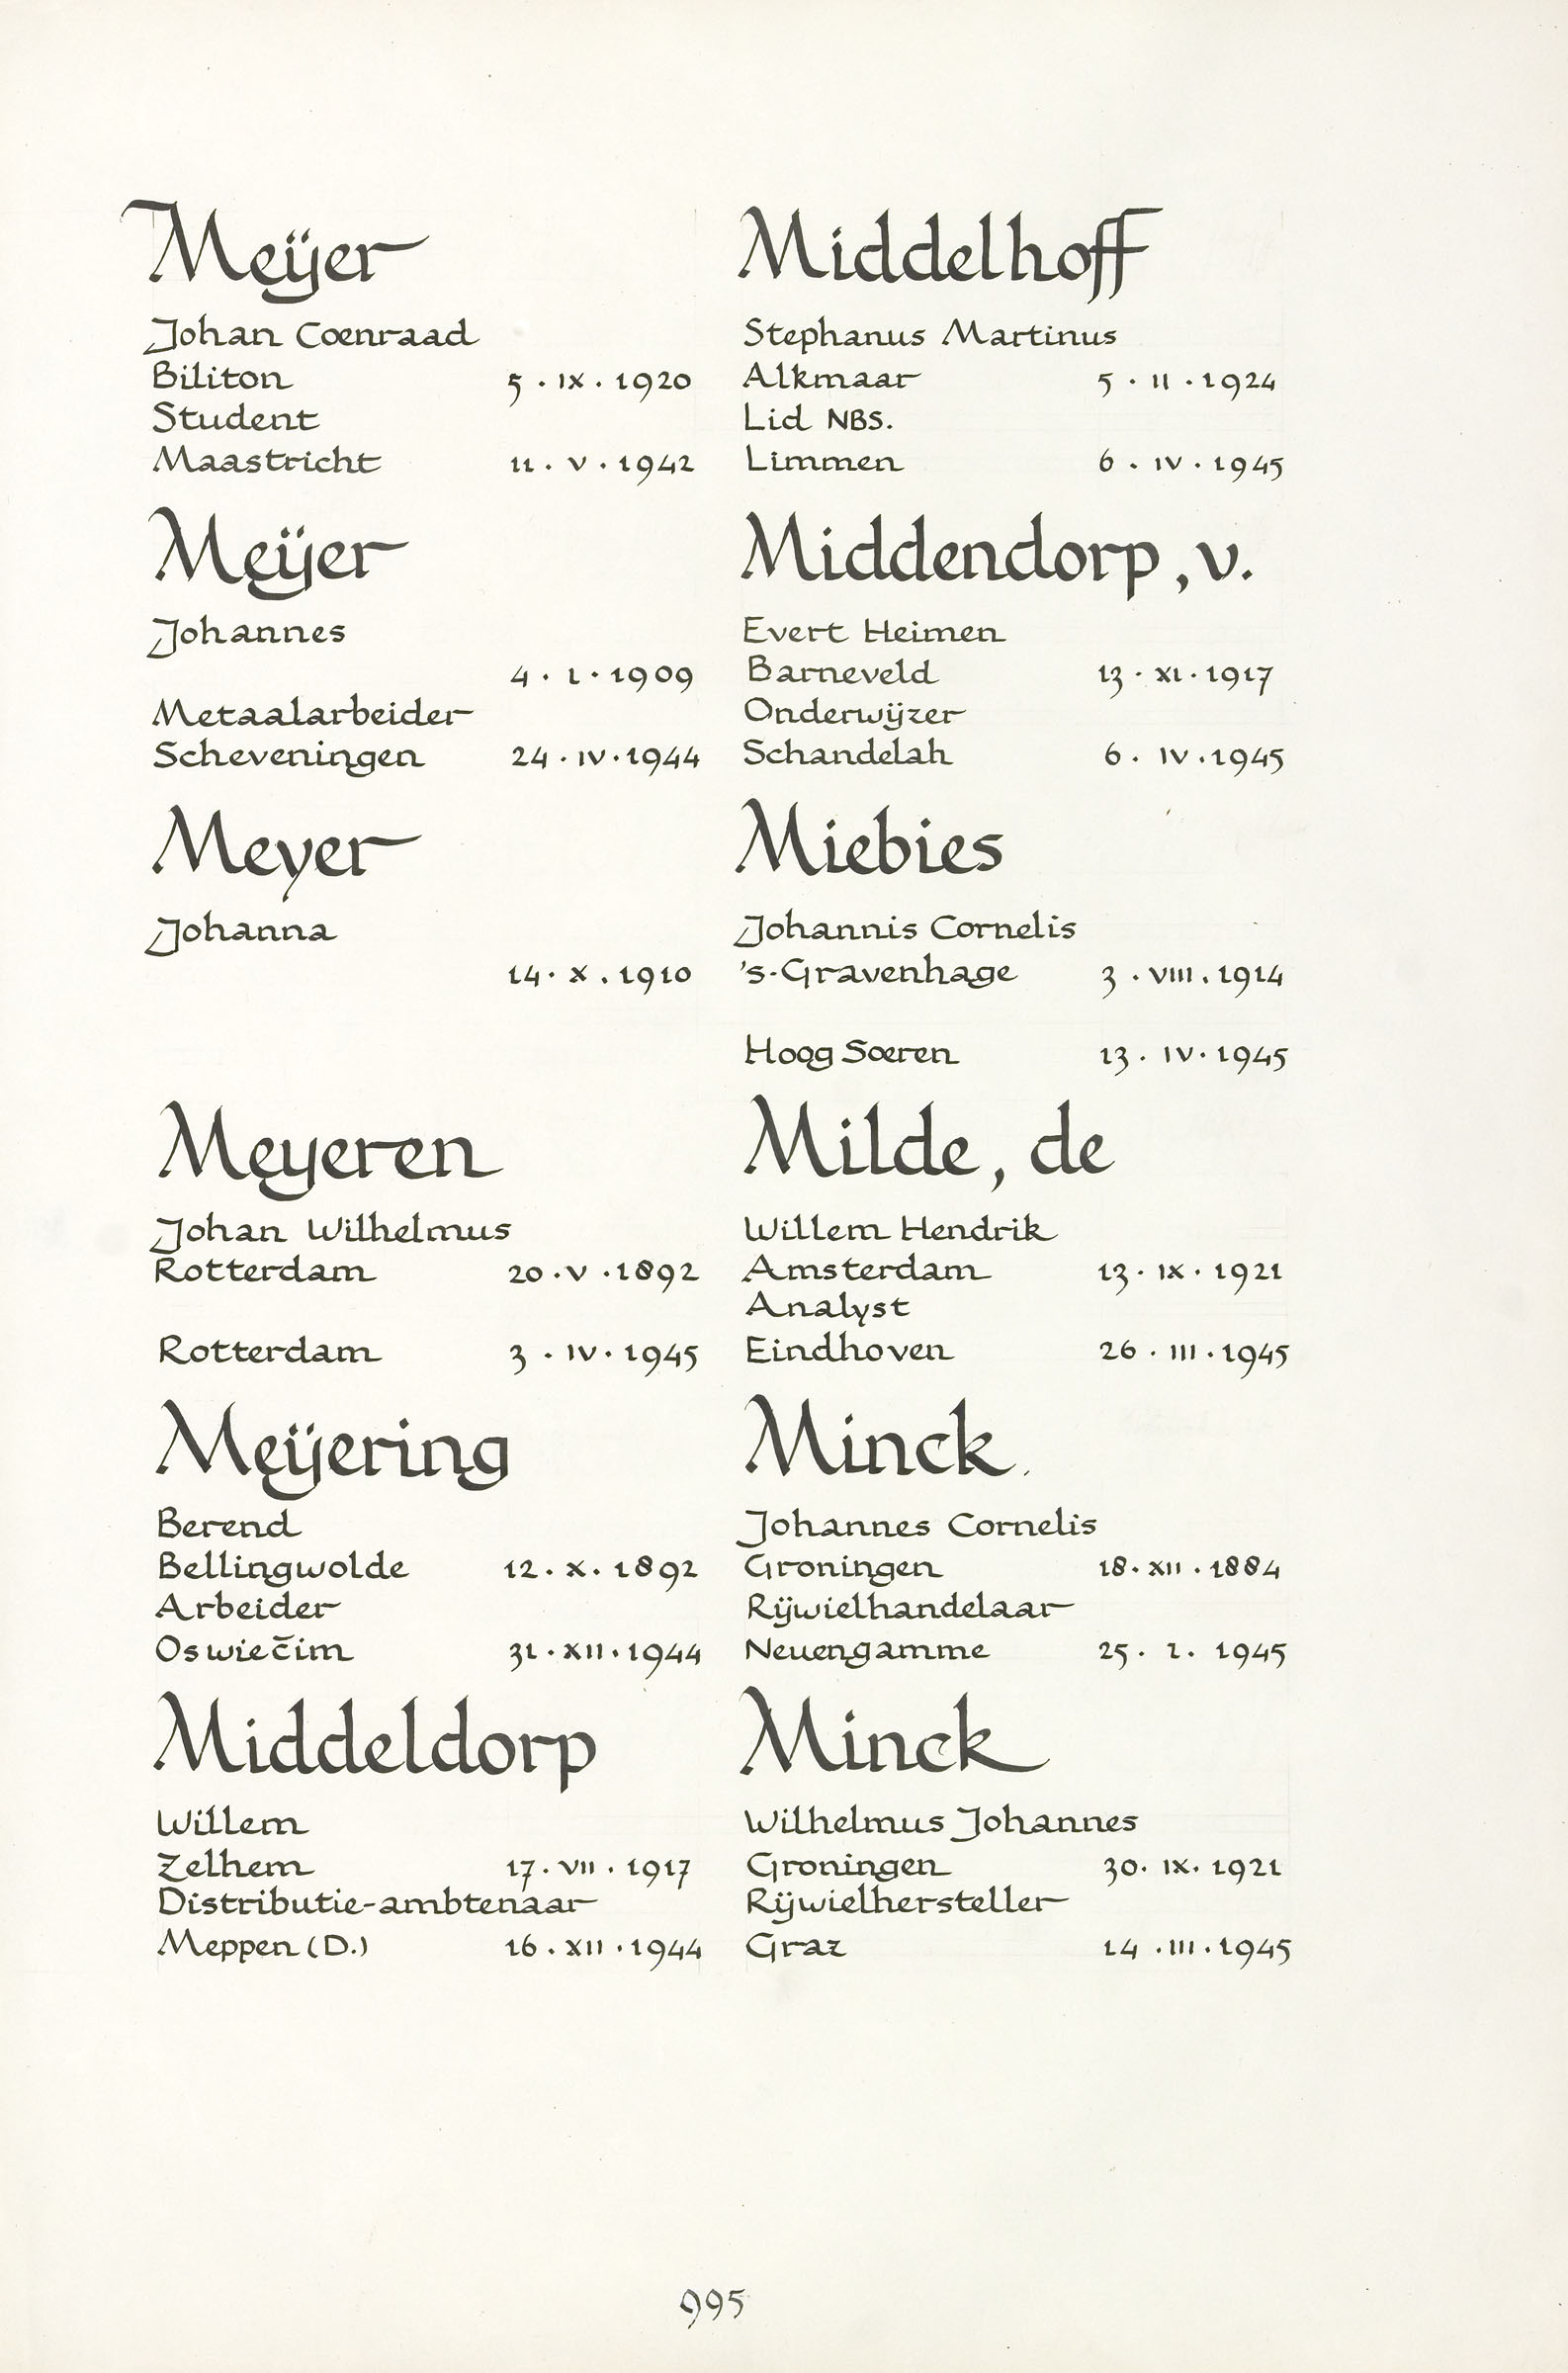 Meÿer
Johan Coenraad
Biliton 5 . IX . 1920
Student
Maastricht 11 . V . 1942
Meÿer
Johannes
4 . I . 1909
Metaalarbeider
Scheveningen 24 . IV . 1944
Meyer
Johanna
14 . X . 1910
Meyeren
Johan Wilhelmus
Rotterdam 20 . V . 1892
Rotterdam 3 . IV . 1945
Meÿering
Berend
Bellingwolde 12 . X . 1892
Arbeider
Oswiečim 31 . XII . 1944
Middeldorp
Willem
Zelhem 17 . VII . 1917
Distributie-ambtenaar
Meppen (D.) 16 . XII . 1944
Middelhoff
Stephanus Martinus
Alkmaar 5 . II . 1924
Lid NBS.
Limmen 6 . IV . 1945
Middendorp, v.
Evert Heimen
Barneveld 13 . XI . 1917
Onderwÿzer
Schandelah 6 . IV . 1945
Miebies
Johannis Cornelis
's-Gravenhage 3 . VIII . 1914
Hoog Soeren 13 . IV . 1945
Milde, de
Willem Hendrik
Amsterdam 13 . IX . 1921
Analyst
Eindhoven 26 . III . 1945
Minck.
Johannes Cornelis
Groningen 18 . XII . 1884
Rÿwielhandelaar
Neuengamme 25 . I . 1945
Minck
Wilhelmus Johannes
Groningen 30 . IX . 1921
Rÿwielhersteller
Graz 14 . III . 1945
995